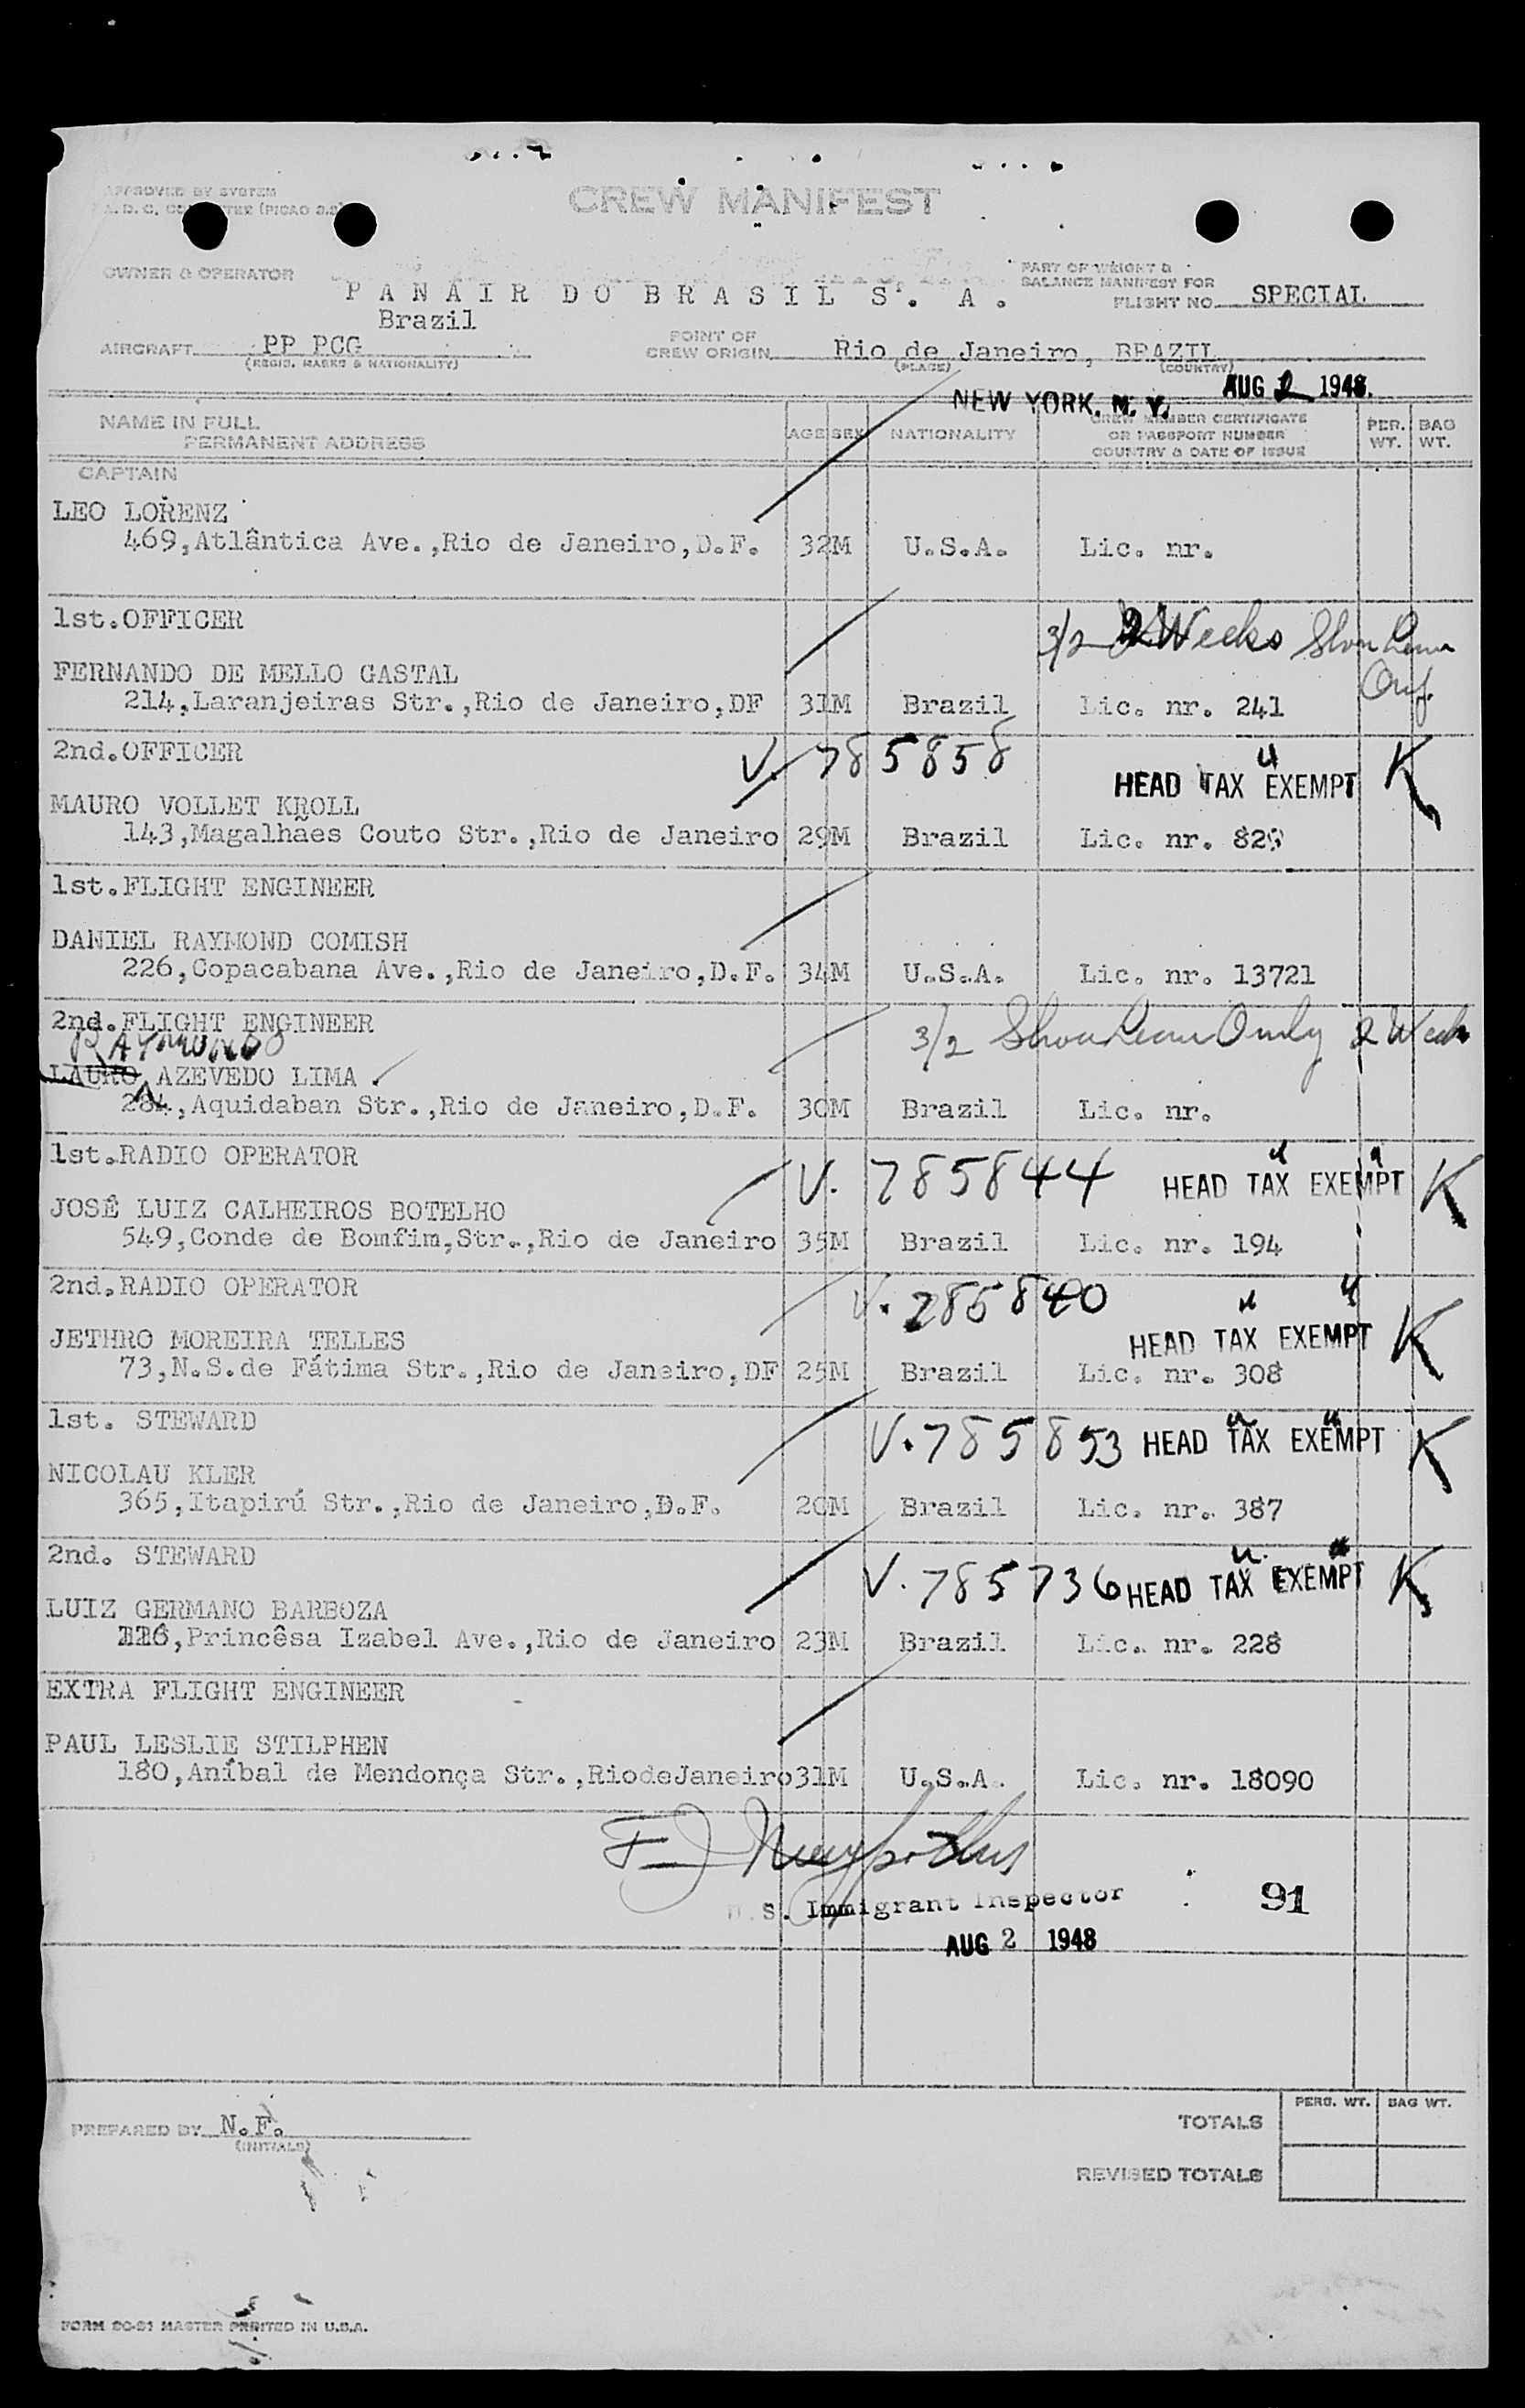 APPROVED BY SYSTEM
CREW MANIFEST
OWNER & OPERATOR
PANAIR DO BRASIL S. A.
PART OF WEIGHT &
BALANCE MANIFEST FOR
FLIGHT NO. SPECIAL
Brazil
AIRCRAFT PP PCG
(REGIS. MARKS & NATIONALITY)
POINT OF
CREW ORIGIN Rio de Janeiro, BRAZIL
(PLACE) (COUNTRY)
NEW YORK, N. Y. AUG 2 1948.
NAME IN FULL
PERMANENT ADDRESS
AGE SEX NATIONALITY
CREW MEMBER CERTIFICATE
OR PASSPORT NUMBER
COUNTRY & DATE OF ISSUE
PER. WT. BAG WT.
CAPTAIN
LEO LORENZ
469,Atlântica Ave.,Rio de Janeiro,D.F. 32 M U.S.A. Lic. nr.
1st.OFFICER
3/2 2 Weeks Shore Leave
Only.
FERNANDO DE MELLO GASTAL
214,Laranjeiras Str.,Rio de Janeiro,DF 31 M Brazil Lic. nr. 241
2nd.OFFICER
V. 785858 HEAD TAX EXEMPT K
MAURO VOLLET KROLL
143,Magalhães Couto Str.,Rio de Janeiro 29 M Brazil Lic. nr. 829
1st.FLIGHT ENGINEER
DANIEL RAYMOND COMISH
226,Copacabana Ave.,Rio de Janeiro,D.F. 34 M U.S.A. Lic. nr. 13721
2nd.FLIGHT ENGINEER
3/2 Shore Leave Only 2 Weeks
RAYMUNDO
LAURO AZEVEDO LIMA
284,Aquidaban Str.,Rio de Janeiro,D.F. 30 M Brazil Lic. nr.
1st.RADIO OPERATOR
V. 785844 HEAD TAX EXEMPT K
JOSÊ LUIZ CALHEIROS BOTELHO
549,Conde de Bomfim,Str.,Rio de Janeiro 35 M Brazil Lic. nr. 194
2nd.RADIO OPERATOR
V. 785840 HEAD TAX EXEMPT K
JETHRO MOREIRA TELLES
73,N.S.de Fátima Str.,Rio de Janeiro,DF 25 M Brazil Lic. nr. 308
1st. STEWARD
V. 785853 HEAD TAX EXEMPT K
NICOLAU KLER
365,Itapirú Str.,Rio de Janeiro,D.F. 20 M Brazil Lic. nr. 387
2nd. STEWARD
V. 785736 HEAD TAX EXEMPT K
LUIZ GERMANO BARBOZA
116,Princêsa Izabel Ave.,Rio de Janeiro 23 M Brazil Lic. nr. 228
EXTRA FLIGHT ENGINEER
PAUL LESLIE STILPHEN
180,Aníbal de Mendonça Str.,RiodeJaneiro 31 M U.S.A. Lic. nr. 18090
U.S. Immigrant Inspector
91
AUG 2 1948
PERS. WT. BAG WT.
PREPARED BY N.F.
(INITIALS)
TOTALS
REVISED TOTALS
FORM DC-21 MASTER PRINTED IN U.S.A.